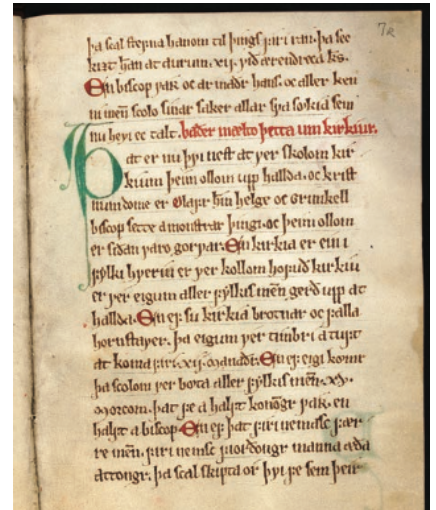 7a
þa scal stefna hanom til þings firi ran. þa sec
kizt han at aurum. xij. við ærendreca kgs.
En biscop var oc ar maðr hans. oc aller len
du men scolo sinar saker allar sva sokia sem
nu hevi ec talt. baðer mælto þetta um kirkiur.
Þat er nu þvi nest at ver skolom kir
kium þeim ollom upp hallda. oc krist
num dome er Olafr hin helge oc Grimkell
biscop sette a monstrar þingi. oc þeim ollom
er sidan varo gorvar. En kirkia er ein i
fylki hveriu er ver kollom hofuð kirkiu
er ver eigum aller fylkis mēn gerð upp at
hallda. En ef su kirkia brotnar oc falla
hornstaver. þa eigum ver timbri a tuft
at koma firi. xij. manaðr. En ef eigi komr
þa scolom ver bota aller fylkis mēn. xv.
morcom. þat fe a halft konongr var. en
halft a biscop. En ef þat firi nemasc fær
re mēn. firi nemsc fiorðongr manna æda
attongr. þa scal skipta or þvi fe sem þeir